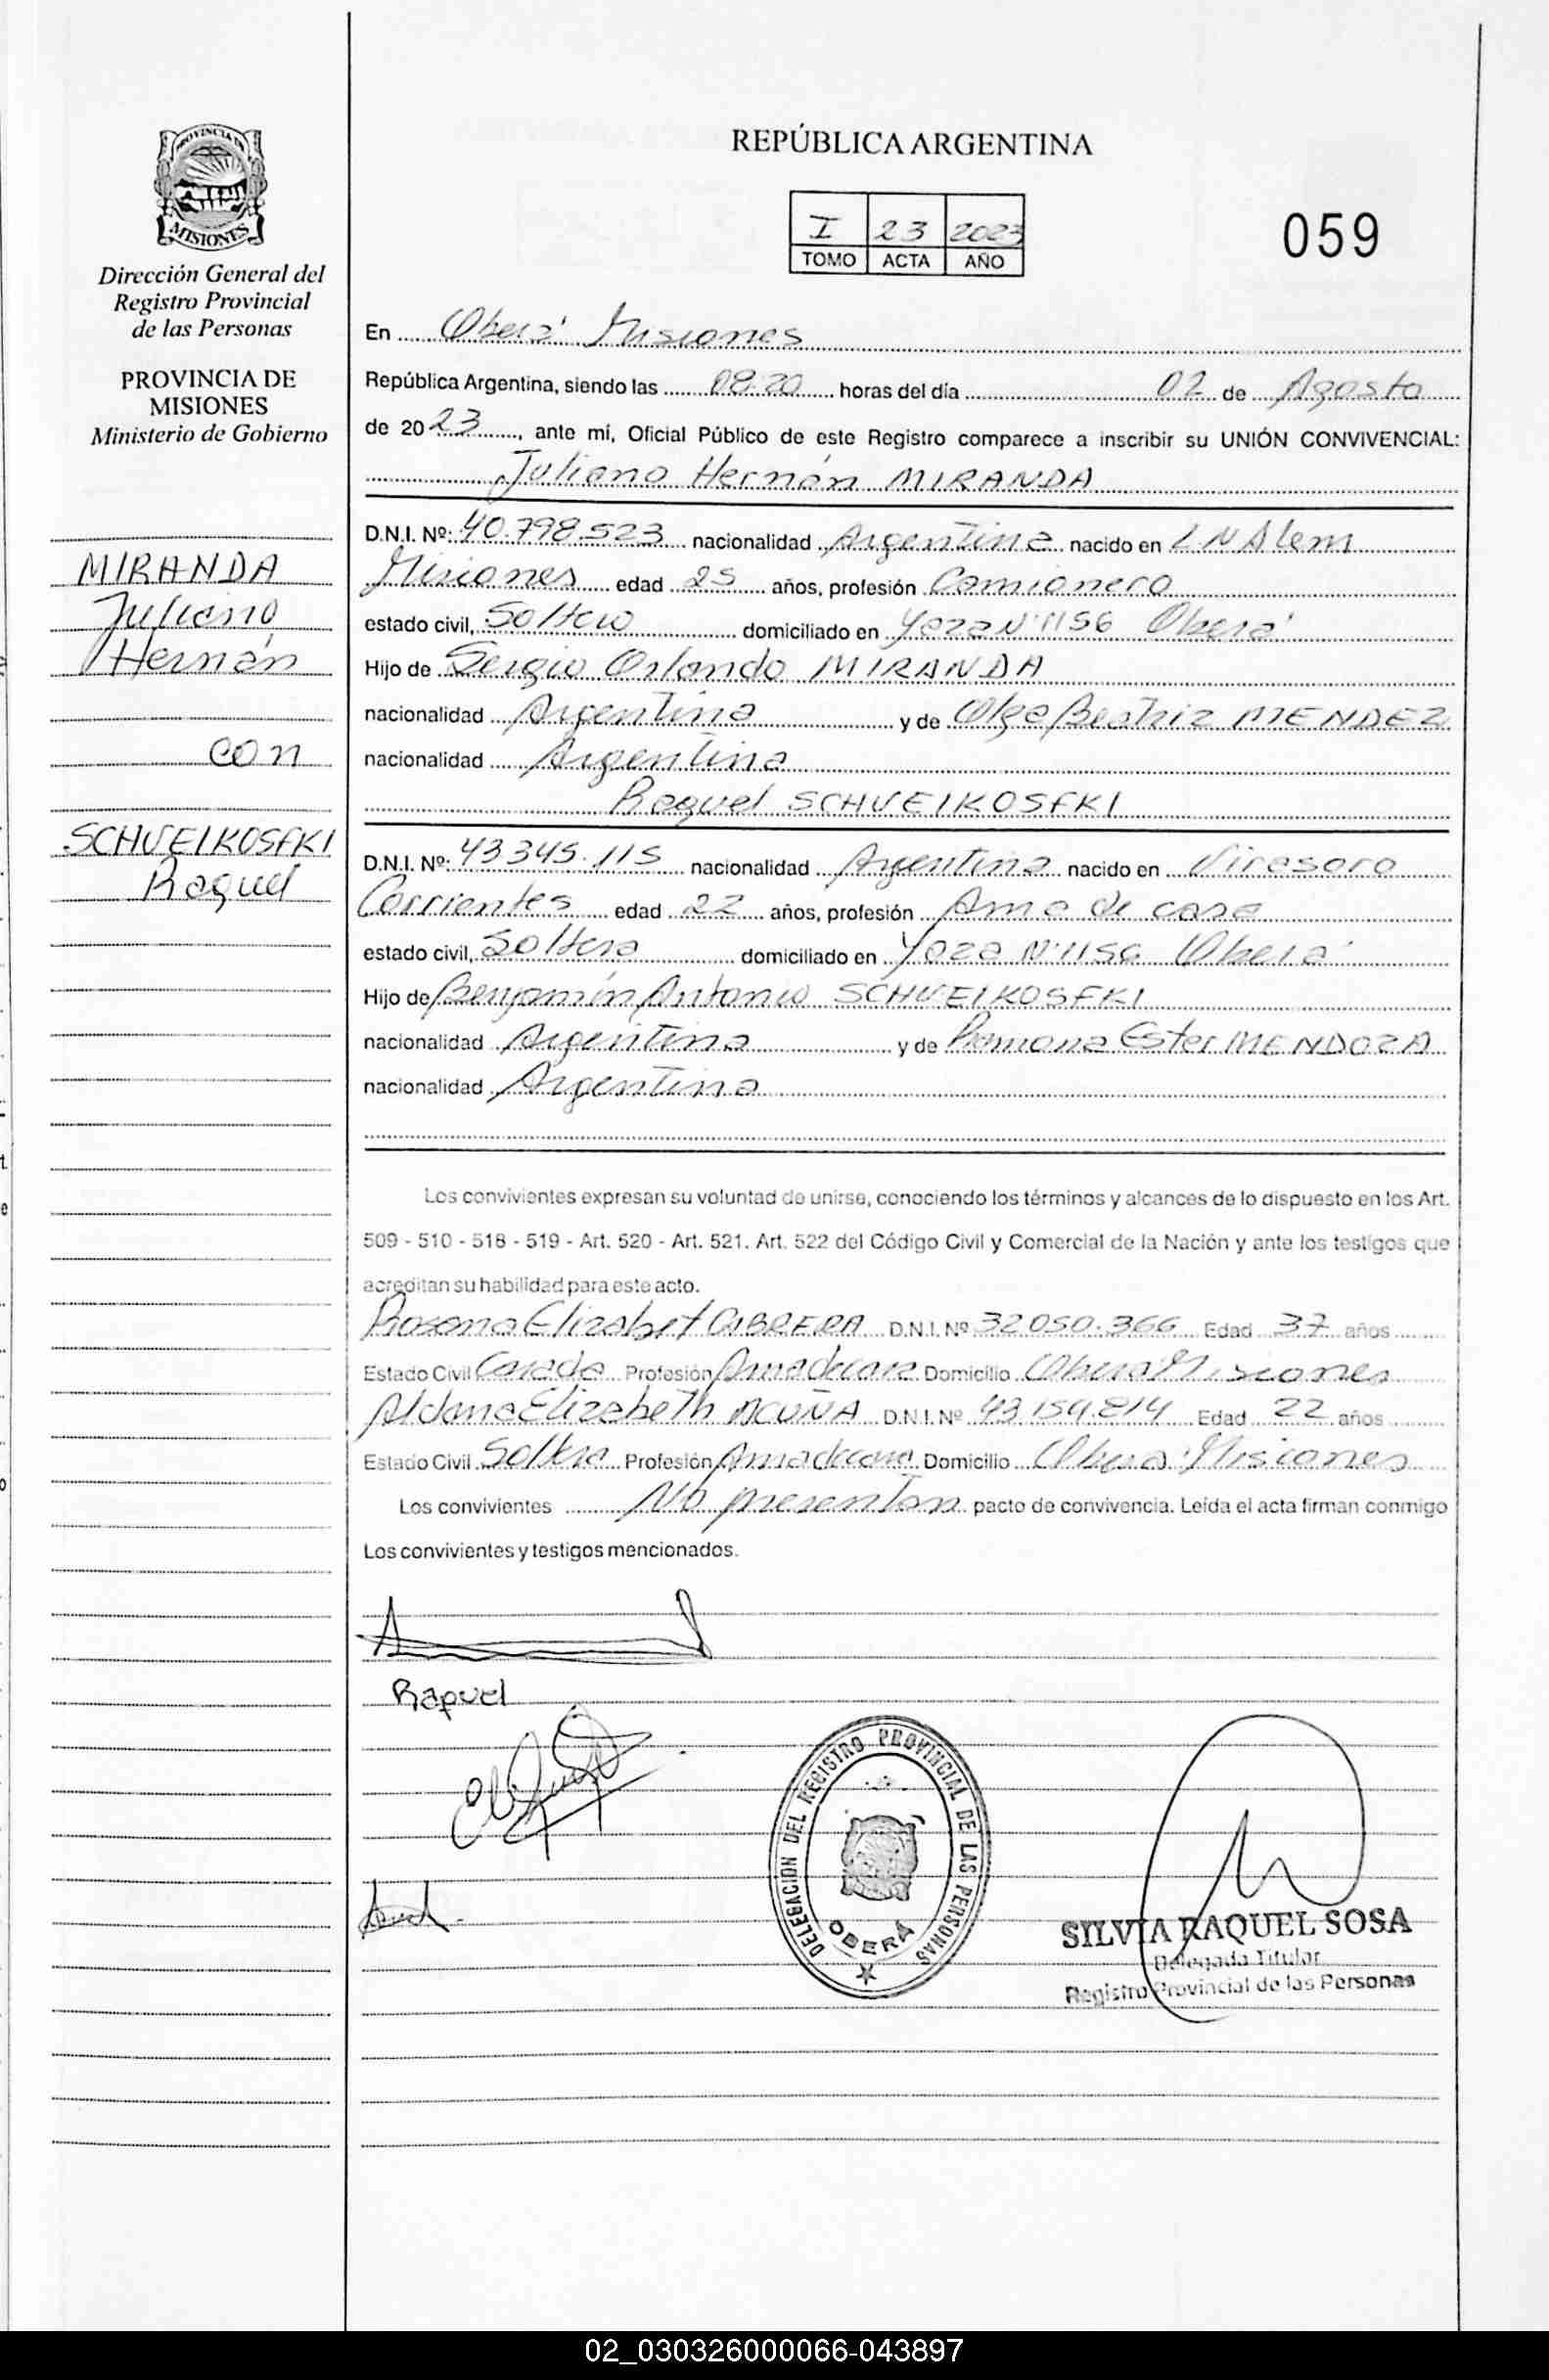 PROVINCIA DE
MISIONES
Dirección General del
Registro Provincial
de las Personas
PROVINCIA DE
MISIONES
Ministerio de Gobierno
MIRANDA
Juliano
Hernán
con
SCHVEIKOSFKI
Raquel
REPÚBLICA ARGENTINA
I 23 2023
TOMO ACTA AÑO
059
En Oberá Misiones
República Argentina, siendo las 08:20 horas del día 02 de Agosto
de 2023, ante mí, Oficial Público de este Registro comparece a inscribir su UNIÓN CONVIVENCIAL:
Juliano Hernán MIRANDA
D.N.I. Nº: 40.798.523 nacionalidad Argentina nacido en L N Alem
Misiones edad 25 años, profesión Camionero
estado civil, Soltero domiciliado en Yaza Nº1156 Oberá
Hijo de Sergio Orlando MIRANDA
nacionalidad Argentina y de Olga Beatriz MENDEZ
nacionalidad Argentina
Raquel SCHVEIKOSFKI
D.N.I. Nº: 43345.115 nacionalidad Argentina nacido en Virasoro
Corrientes edad 22 años, profesión Ama de casa
estado civil, Soltera domiciliado en Yaza Nº1156 Oberá
Hijo de Benjamín Antonio SCHVEIKOSFKI
nacionalidad Argentina y de Ramona Ester MENDOZA
nacionalidad Argentina
Los convivientes expresan su voluntad de unirse, conociendo los términos y alcances de lo dispuesto en los Art.
509 - 510 - 518 - 519 - Art. 520 - Art. 521. Art. 522 del Código Civil y Comercial de la Nación y ante los testigos que
acreditan su habilidad para este acto.
Rosana Elizabet CABRERA D.N.I. Nº 32050.366 Edad 37 años
Estado Civil Casada Profesión Ama de casa Domicilio Oberá Misiones
Aldana Elizabeth ACUÑA D.N.I. Nº 43154.814 Edad 22 años
Estado Civil Soltera Profesión Ama de casa Domicilio Oberá Misiones
Los convivientes No presentan pacto de convivencia. Leída el acta firman conmigo
Los convivientes y testigos mencionados.
Raquel
DELEGACION DEL REGISTRO PROVINCIAL DE LAS PERSONAS
OBERÁ
SILVIA RAQUEL SOSA
Delegada Titular
Registro Provincial de las Personas
02_030326000066-043897